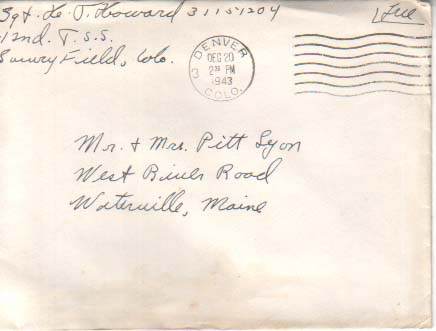 Sgt. Le. J. Howard 31151204
Free
12nd. T.S.S.
Lowry Field, Colo.
DENVER
3
DEC 20
2 30 PM
1943
COLO.
Mr. & Mrs. Pitt Lyon
West River Road
Waterville, Maine